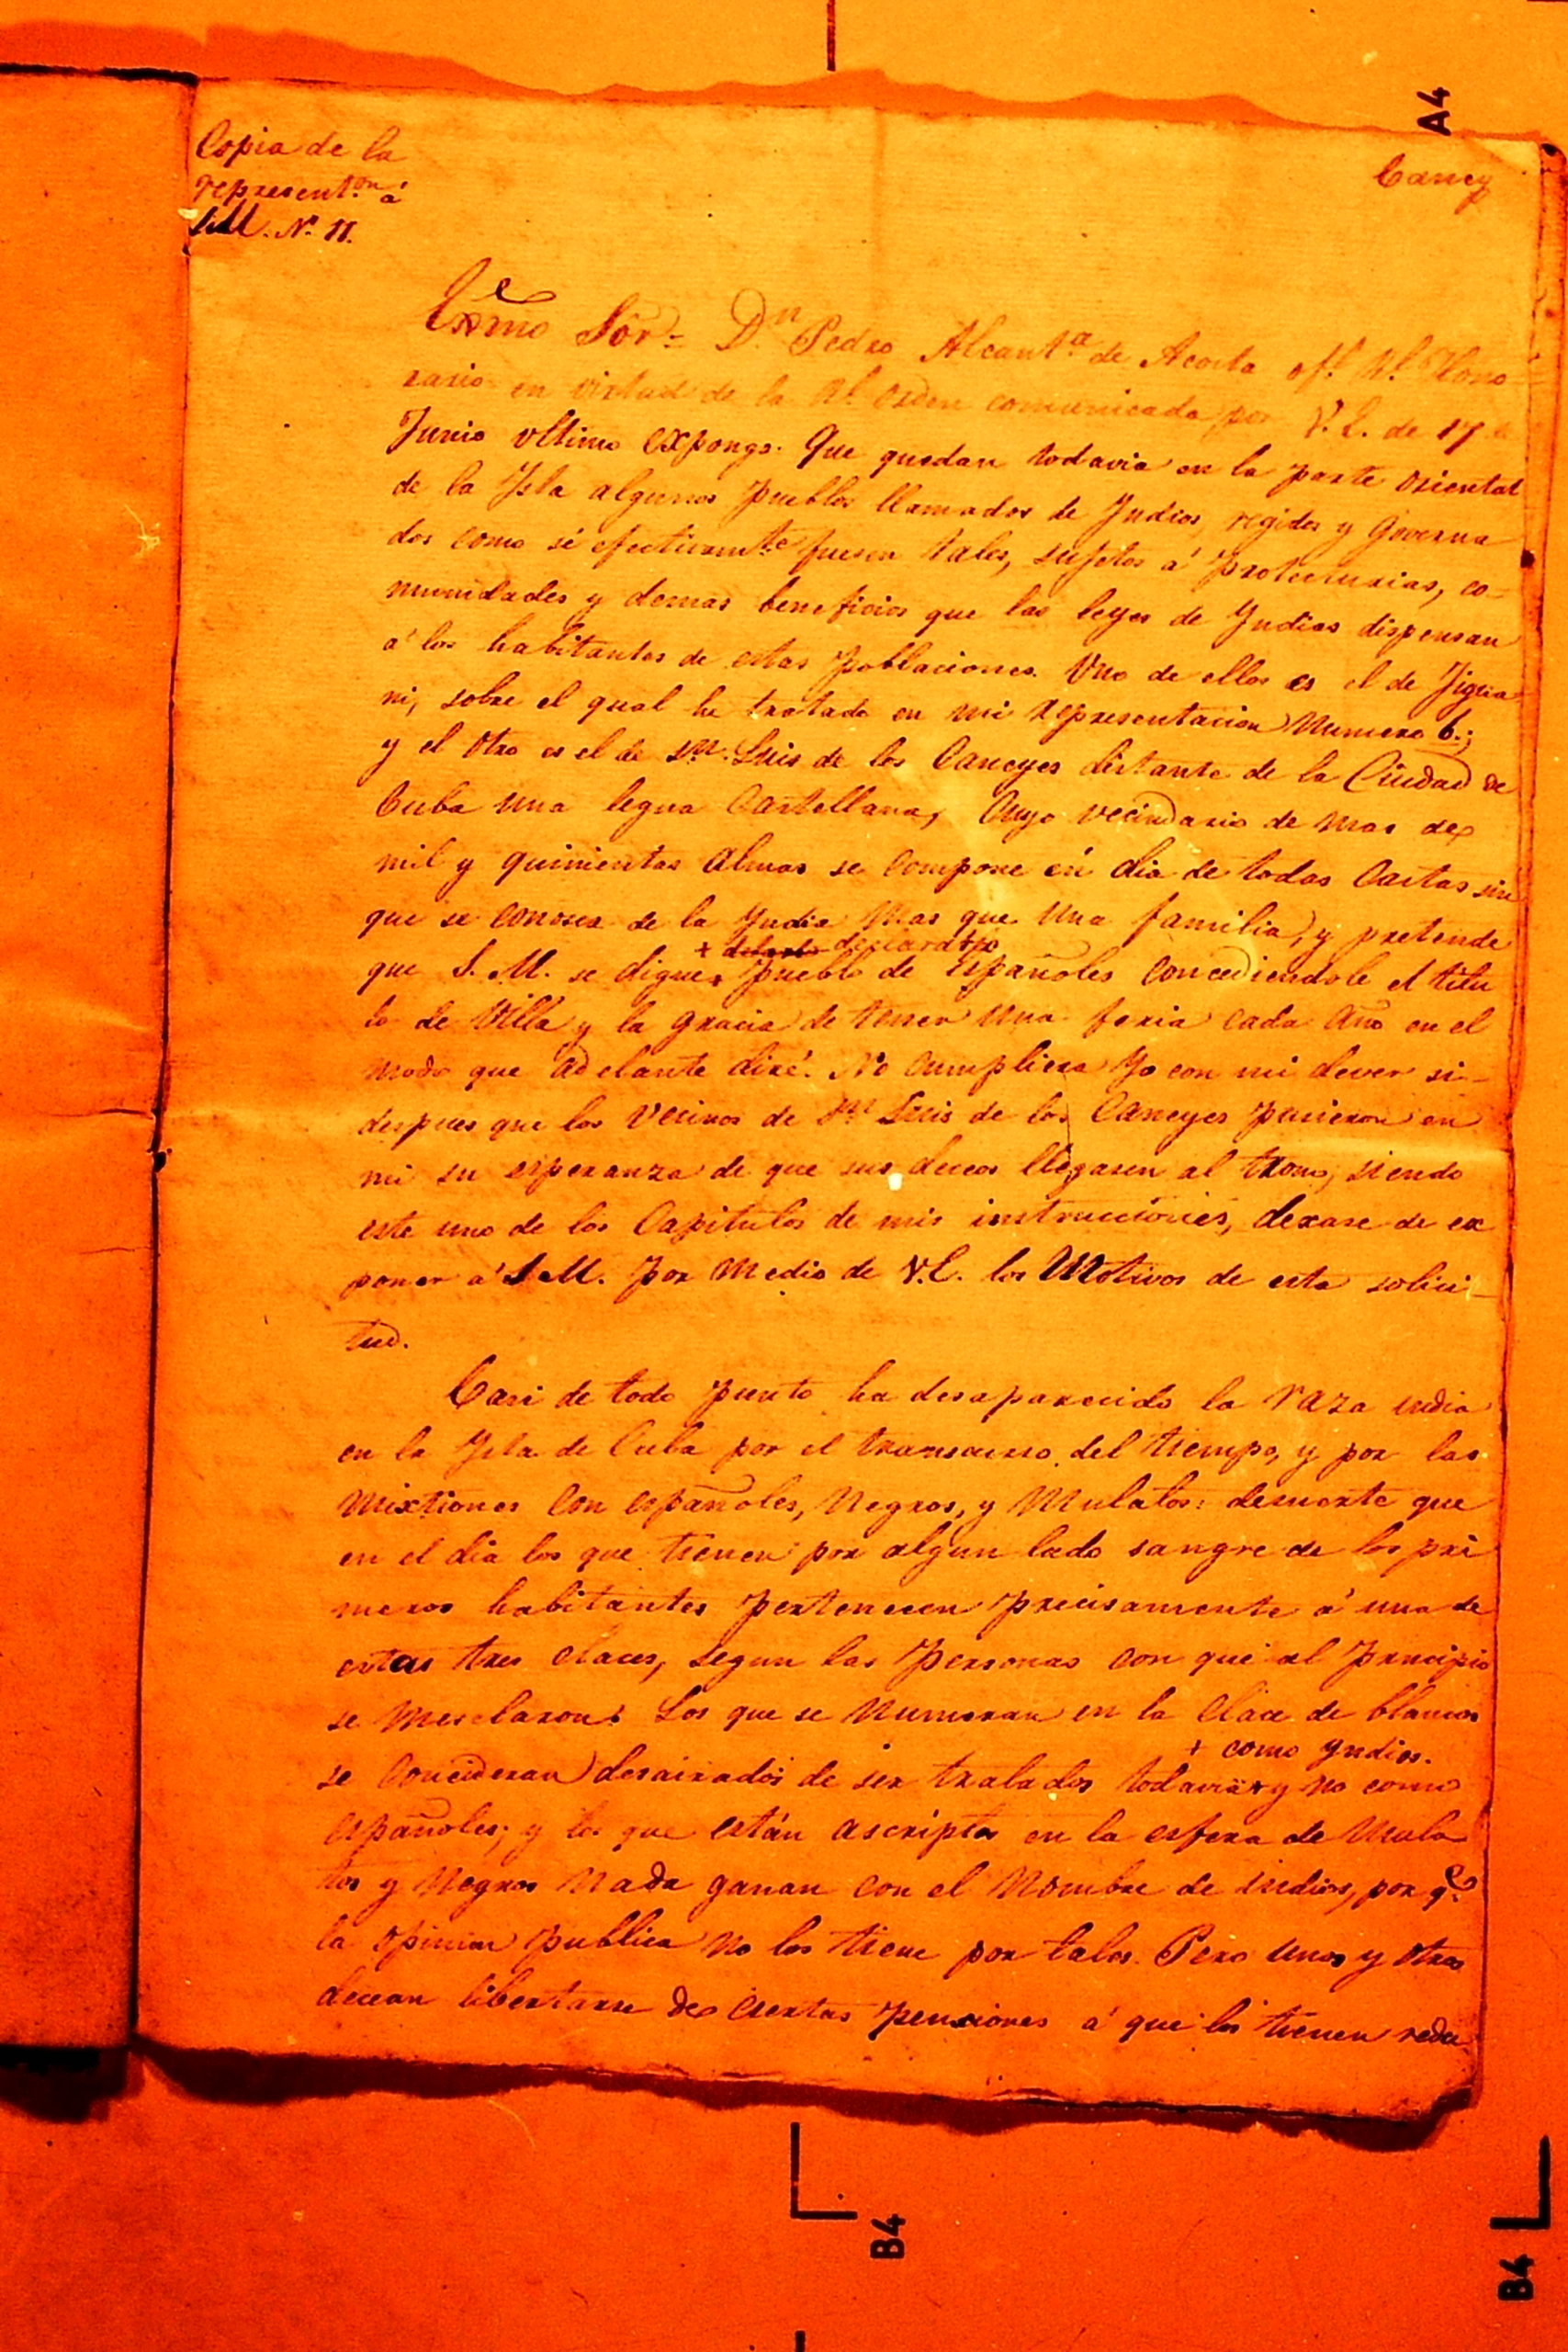 Copia de la
represent.on á
S.M. N.º 11.
Caney
A4
Exmo Sôr.= D.n Pedro Alcant.a de Acosta of.l R.l Hono
rario en virtud de la R.l orden comunicada por V.E. de 17 de
Junio vltimo expongo: Que quedan todavia en la parte oriental
de la Ysla algunos pueblos llamados de Yndios, regidos y Governa
dos como si efectivam.te fuesen tales, sujetos á protecturias, co=
munidades y demas beneficios que las leyes de Yndias dispensan
á los habitantes de estas poblaciones. Uno de ellos es el de Jigua
ni, sobre el qual he tratado en mi representacion Numero 6.;
y el otro es el de S.n Luis de los Caneyes distante de la Ciudad de
Cuba una legua Castellana, Cuyo vecindario de mas de
mil y quinientas almas se compone en dia de todas Castas sin
que se conosca de la Yndia mas que una familia, y pretende
+ declararlo
que S. M. se digne+ pueblo de españoles concediendole el titu
lo de Villa y la gracia de tener una feria cada año en el
modo que adelante diré. No cumpliera Yo con mi dever si-
despues que los vecinos de S.n Luis de los Caneyes pusieron en
mi su esperanza de que sus deceos llegasen al trono, siendo
este uno de los Capitulos de mis instrucciones, dexase de ex
poner á S.M. por medio de V.E. los Motivos de esta solici-
tud.
Casi de todo punto ha desaparecido la raza india
en la Ysla de Cuba por el transcurso del tiempo, y por las
mixtiones con españoles, Negros, y Mulatos: desuerte que
en el dia los que tienen por algun lado sangre de los pri
meros habitantes pertenecen precisamente á una de
estas tres claces, segun las personas con que al principio
se mesclaron: Los que se numeran en la clace de blancos
+ como Yndios.
se concideran desairados de ser tratados todavia+ y no como
españoles; y los que están ascriptos en la esfera de Mula
tos y Negros nada ganan con el Nombre de indios, por q.e
la opinion publica no los tiene por tales. Pero unos y otros
decean libertarse de ciertas penciones á que los tienen redu
B4
B4